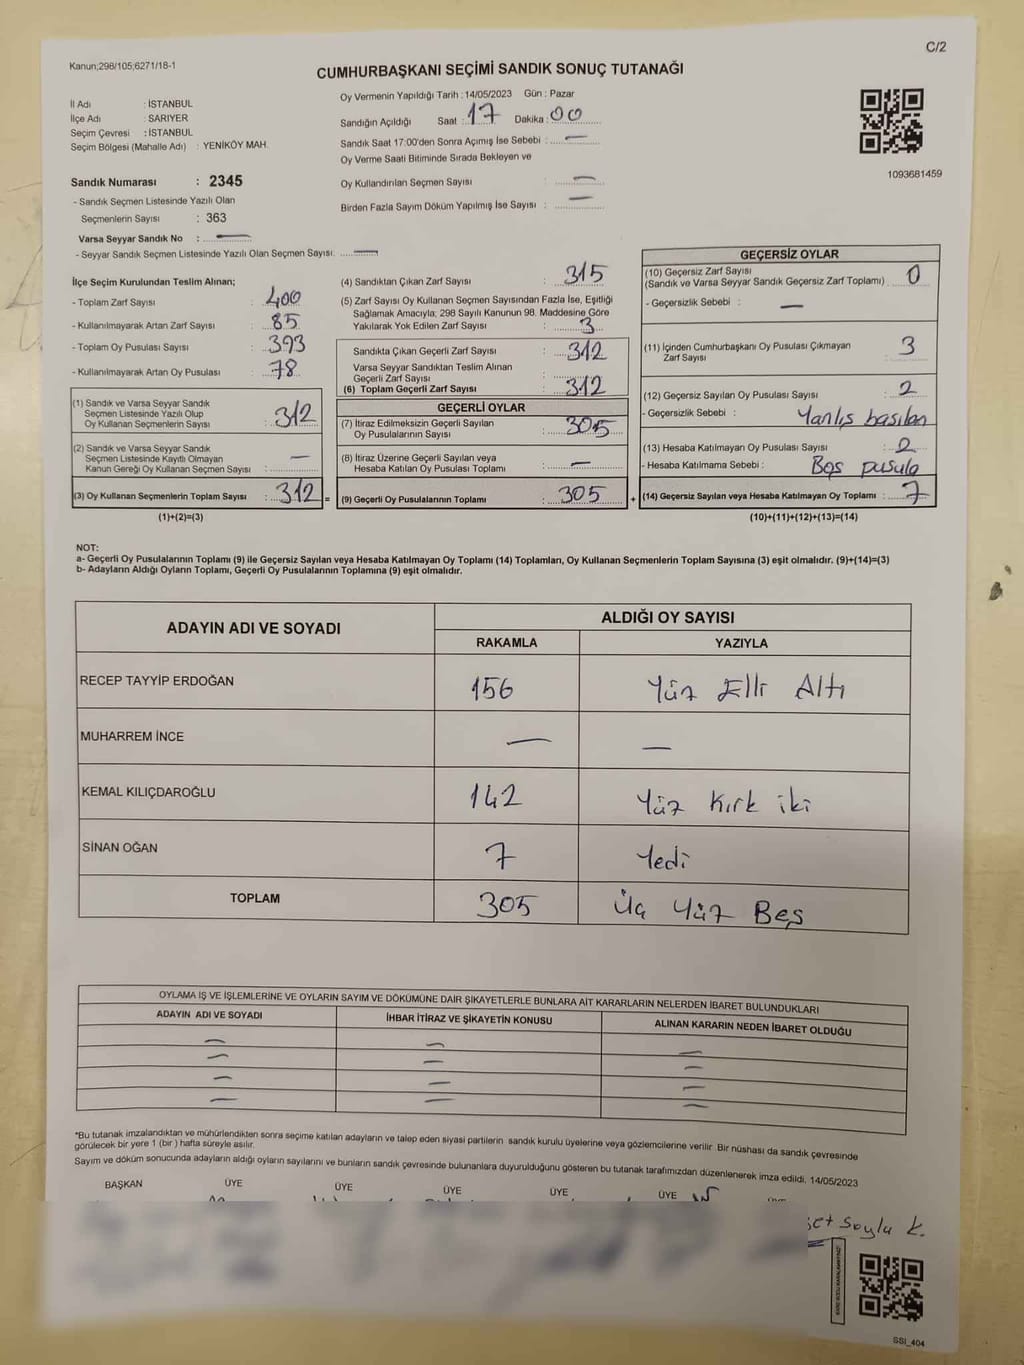 C/2
Kanun;298/105;6271/18-1
CUMHURBAŞKANI SEÇİMİ SANDIK SONUÇ TUTANAĞI
İl Adı : İSTANBUL
İlçe Adı : SARIYER
Seçim Çevresi : İSTANBUL
Seçim Bölgesi (Mahalle Adı) : YENİKÖY MAH.
Oy Vermenin Yapıldığı Tarih : 14/05/2023 Gün : Pazar
Sandığın Açıldığı Saat : 17 Dakika : 00
Sandık Saat 17:00'den Sonra Açımış İse Sebebi : —
Oy Verme Saati Bitiminde Sırada Bekleyen ve
Oy Kullandırılan Seçmen Sayısı : —
Birden Fazla Sayım Döküm Yapılmış İse Sayısı : —
1093681459
Sandık Numarası : 2345
- Sandık Seçmen Listesinde Yazılı Olan
Seçmenlerin Sayısı : 363
Varsa Seyyar Sandık No : —
- Seyyar Sandık Seçmen Listesinde Yazılı Olan Seçmen Sayısı: —
İlçe Seçim Kurulundan Teslim Alınan;
- Toplam Zarf Sayısı : 400
- Kullanılmayarak Artan Zarf Sayısı : 85
- Toplam Oy Pusulası Sayısı : 393
- Kullanılmayarak Artan Oy Pusulası : 78
(1) Sandık ve Varsa Seyyar Sandık
Seçmen Listesinde Yazılı Olup
Oy Kullanan Seçmenlerin Sayısı : 312
(2) Sandık ve Varsa Seyyar Sandık
Seçmen Listesinde Kayıtlı Olmayan
Kanun Gereği Oy Kullanan Seçmen Sayısı : —
(3) Oy Kullanan Seçmenlerin Toplam Sayısı : 312 =
(1)+(2)=(3)
(4) Sandıktan Çıkan Zarf Sayısı : 315
(5) Zarf Sayısı Oy Kullanan Seçmen Sayısından Fazla İse, Eşitliği
Sağlamak Amacıyla; 298 Sayılı Kanunun 98. Maddesine Göre
Yakılarak Yok Edilen Zarf Sayısı : 3
Sandıkta Çıkan Geçerli Zarf Sayısı : 312
Varsa Seyyar Sandıktan Teslim Alınan
Geçerli Zarf Sayısı :
(6) Toplam Geçerli Zarf Sayısı : 312
GEÇERLİ OYLAR
(7) İtiraz Edilmeksizin Geçerli Sayılan
Oy Pusulalarının Sayısı : 305
(8) İtiraz Üzerine Geçerli Sayılan veya
Hesaba Katılan Oy Pusulası Toplamı : —
(9) Geçerli Oy Pusulalarının Toplamı : 305 +
GEÇERSİZ OYLAR
(10) Geçersiz Zarf Sayısı
(Sandık ve Varsa Seyyar Sandık Geçersiz Zarf Toplamı) 0
- Geçersizlik Sebebi : —
(11) İçinden Cumhurbaşkanı Oy Pusulası Çıkmayan
Zarf Sayısı : 3
(12) Geçersiz Sayılan Oy Pusulası Sayısı : 2
- Geçersizlik Sebebi : Yanlış basılan
(13) Hesaba Katılmayan Oy Pusulası Sayısı : 2
- Hesaba Katılmama Sebebi : Boş pusula
(14) Geçersiz Sayılan veya Hesaba Katılmayan Oy Toplamı : 7
(10)+(11)+(12)+(13)=(14)
NOT:
a- Geçerli Oy Pusulalarının Toplamı (9) ile Geçersiz Sayılan veya Hesaba Katılmayan Oy Toplamı (14) Toplamları, Oy Kullanan Seçmenlerin Toplam Sayısına (3) eşit olmalıdır. (9)+(14)=(3)
b- Adayların Aldığı Oyların Toplamı, Geçerli Oy Pusulalarının Toplamına (9) eşit olmalıdır.
ADAYIN ADI VE SOYADI
ALDIĞI OY SAYISI
RAKAMLA YAZIYLA
RECEP TAYYİP ERDOĞAN 156 Yüz Elli Altı
MUHARREM İNCE — —
KEMAL KILIÇDAROĞLU 142 Yüz Kırk iki
SİNAN OĞAN 7 Yedi
TOPLAM 305 Üç Yüz Beş
OYLAMA İŞ VE İŞLEMLERİNE VE OYLARIN SAYIM VE DÖKÜMÜNE DAİR ŞİKAYETLERLE BUNLARA AİT KARARLARIN NELERDEN İBARET BULUNDUKLARI
ADAYIN ADI VE SOYADI İHBAR İTİRAZ VE ŞİKAYETİN KONUSU ALINAN KARARIN NEDEN İBARET OLDUĞU
— — —
— — —
— — —
— — —
*Bu tutanak imzalandıktan ve mühürlendikten sonra seçime katılan adayların ve talep eden siyasi partilerin sandık kurulu üyelerine veya gözlemcilerine verilir. Bir nüshası da sandık çevresinde
görülecek bir yere 1 (bir ) hafta süreyle asılır.
Sayım ve döküm sonucunda adayların aldığı oyların sayılarını ve bunların sandık çevresinde bulunanlara duyurulduğunu gösteren bu tutanak tarafımızdan düzenlenerek imza edildi. 14/05/2023
BAŞKAN ÜYE ÜYE ÜYE ÜYE ÜYE
Soylu K.
SSI_404